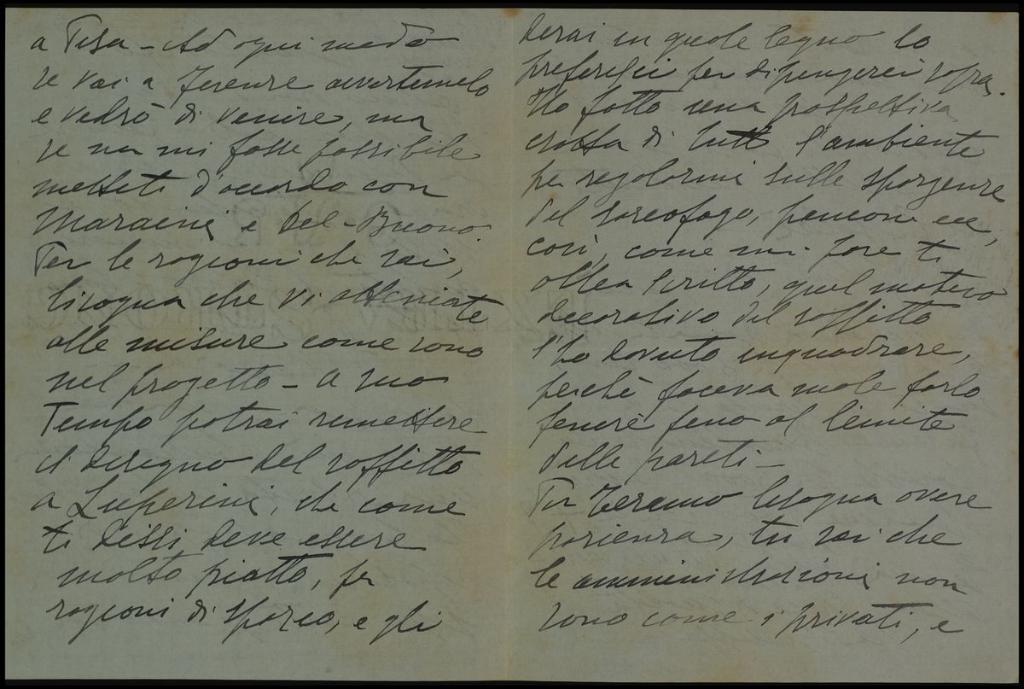 a Pisa - Ad ogni modo
se vai a Firenze avvertimelo
e vedrò di venire, ma
se non mi fosse possibile
mettiti d'accordo con
Maraini e Del-Buono.
Per le ragioni che sai,
bisogna che vi atteniate
alle misure come sono
nel progetto - A suo
Tempo potrai rimettere
il disegno del soffitto
a Luperini, che come
ti dissi deve essere
molto piatto, per
ragioni di spazio, e gli
dirai in quale legno lo
preferisci per dipingerci sopra.
Ho fatto una prospettiva
esatta di tutto l'ambiente
per regolarmi sulle sporgenze
del sarcofago, pencone ecc,
così, come mi pare ti
abbia scritto, quel motivo
decorativo del soffitto
l'ho dovuto inquadrare,
perchè faceva male farlo
fino al limite
delle pareti -
Per Teramo bisogna avere
pazienza, tu sai che
le amministrazioni non
sono come i privati, e